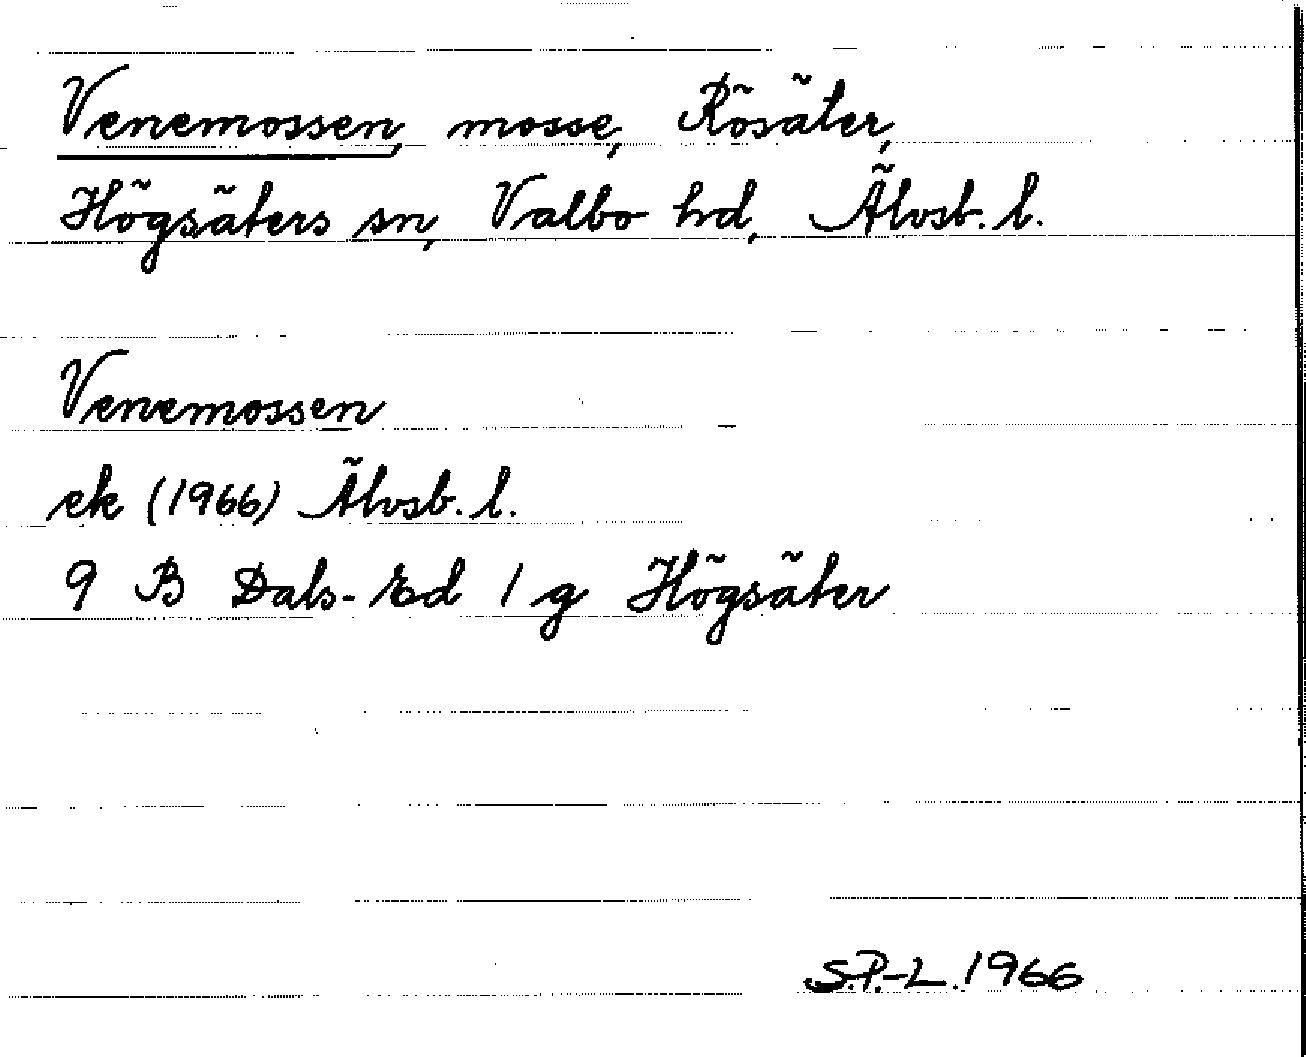 Venemossen, mosse, Rösäter,
Högsäters sn, Valbo hd, Älvsb. l.
Venemossen
ek (1966) Älvsb. l.
9 B Dals-Ed 1 g Högsäter
S.P.-L. 1966